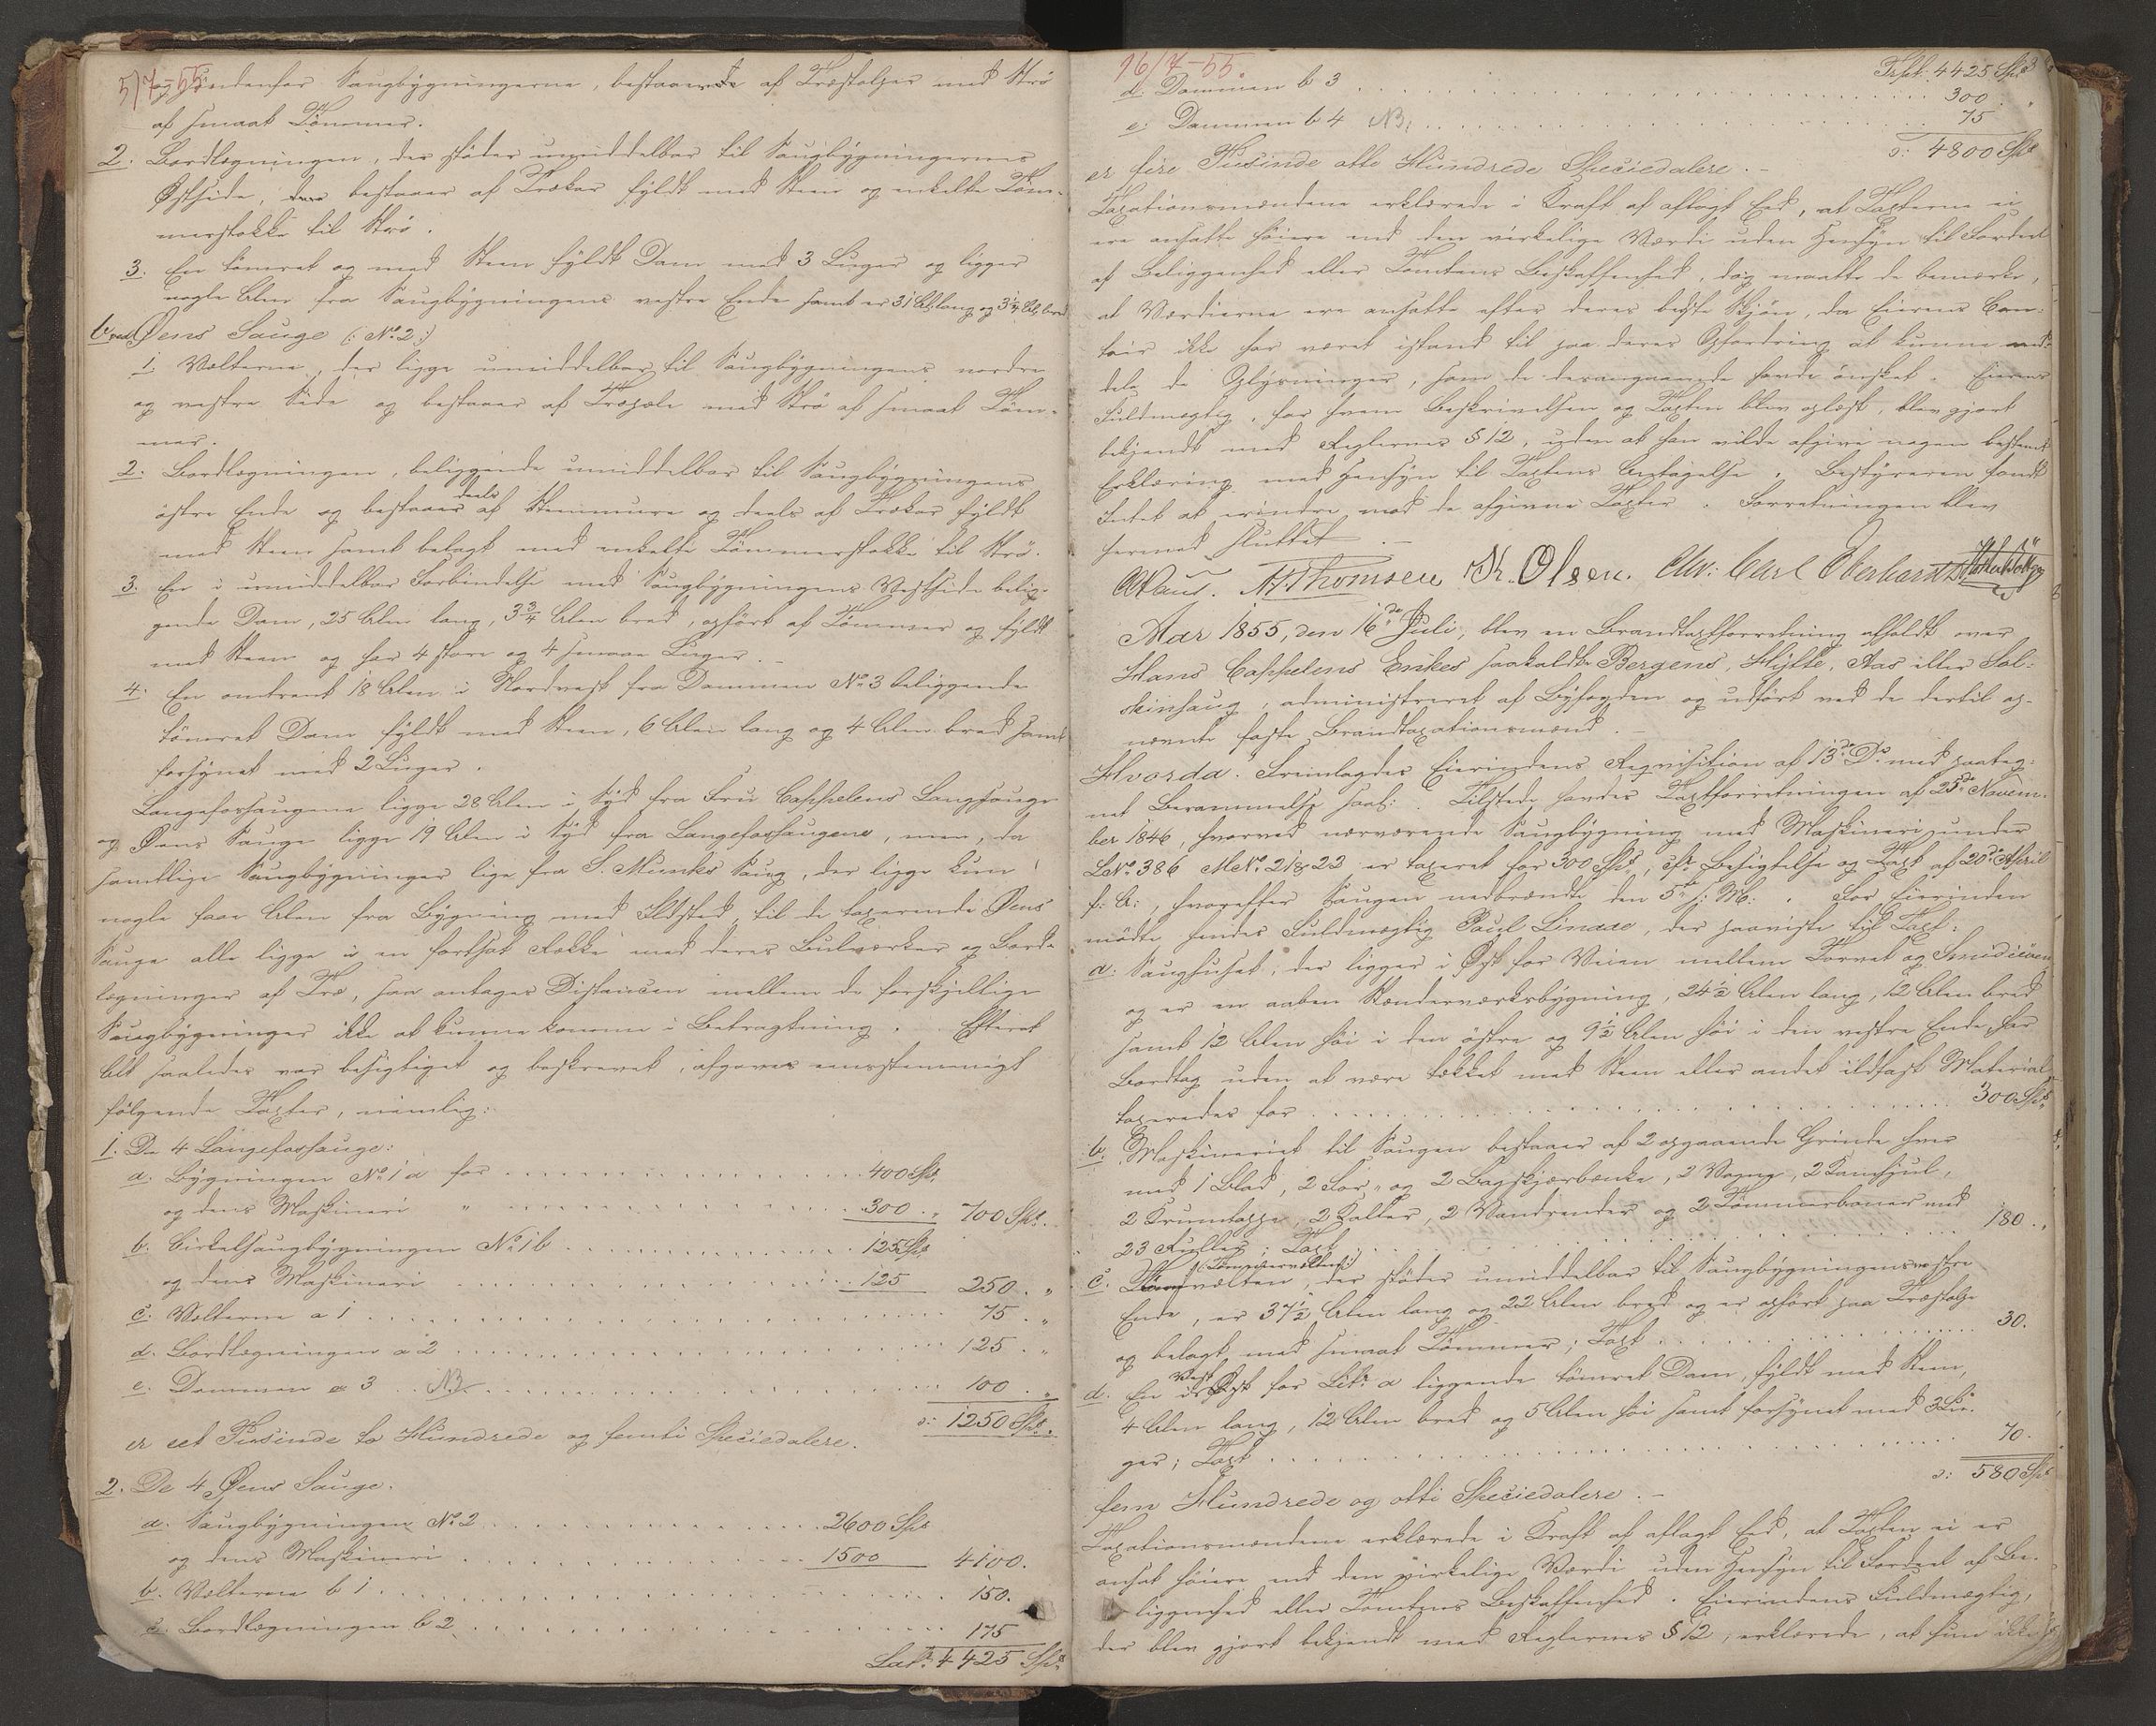 5/7-55.
og Søndenfor Saugbygningerne, bestaaende af Træstolper med Strø
af smaat Tømmer.
2. Bordlægningen, der støder umiddelbar til Saugbygningernes
Østside, bestaaer af Trækar fyldt med Steen og enkelte Tøm-
merstokke til Strø.
3. En tømret og med Steen fyldt Dam med 3 Luger og ligger
nogle Alen fra Saugbygningens vestre Ende samt er 31 Al. lang og 3 1/4 Al. bred
b. Øens Sauge (: No 2:)
1. Velterne, der ligge umiddelbar til Saugbygningens nordre
og vestre Side og bestaaer af Træpæle med Strø af smaat Tøm-
mer.
2. Bordlægningen, beliggende umiddelbar til Saugbygningens
østre Ende og bestaaer deels af Steenmure og deels af Trækar fyldt
med Steen samt belagt med enkelte Tømmerstokke til Strø.
3. En i umiddelbar Forbindelse med Saugbygningens Vestside belig-
gende Dam, 25 Alen lang, 3 3/4 Alen bred, opført af Tømmer og fyldt
med Steen og har 4 store og 4 smaae Luger.
4. En omtrent 18 Alen i Nordvest fra Dammen No 3 beliggende
tømret Dam fyldt med Steen, 6 Alen lang og 4 Alen bred samt
forsynet med 2 Luger.
Langefossaugene ligge 28 Alen i Syd fra Fru Cappelens Langsauge
og Øens Sauge ligge 19 Alen i Syd fra Langefossaugene, men, da
samtlige Saugbygninger lige fra S. Munks Saug, der ligge kun
nogle faae Alen fra Bygning med Ildsted, til de taxerende Øens
Sauge alle ligge i en fortsat Række med deres Bulværker og Bord-
lægninger af Træ, saa antages Distancen mellem de forskjellige
Saugbygninger ikke at kunne komme i Betragtning. Efterat
Alt saaledes var besigtiget og beskrevet, afgaves eensstemmigt
følgende Taxter, nemlig:
1. De 4 Langefossauge:
a. Bygningen No 1 a for 400 Spd.
og dens Maskineri " 300 " 700 Spd.
b. Cirkelsaugbygningen No 1 b 125 Spd
og dens Maskineri 125 250 "
c. Velterne a 1 75 "
d. Bordlægningen a 2 125 "
e. Dammen a 3 NB. 100 "
o: 1250 Spd.
er eet Tusinde to Hundrede og femti Speciedalere.
2. De 4 Øens Sauge.
a. Saugbygningen No 2 2600 Spd
og dens Maskineri 1500 4100.
b. Velterne b 1 150.
c. Bordlægningen b 2 175
Lat. 4425 Spd.
16/7-55.
Trsp. 4425 Spd
d. Dammen b 3 300 "
e. Dammen b 4 NB. 75
o: 4800 Spd
er fire Tusinde otte Hundrede Speciedalere.
Taxationsmændene erklærede i Kraft af aflagt Eed, at Taxterne ei
ere ansatte høiere end den virkelige Værdi uden Hensyn til Fordeel
af Beliggenhed eller Tomtens Beskaffenhed, dog maatte de bemærke,
at Værdierne ere ansatte efter deres bedste Skjøn, da Eierens Con-
toir ikke har været istand til paa deres Opfordring at kunne med-
dele de Oplysninger, som de desangaaende havde ønsket. Eierens
Fuldmægtig, for hvem Beskrivelsen og Taxten blev oplæst, blev gjort
bekjendt med Reglernes § 12, uden at han vilde afgive nogen bestemt
Erklæring med Hensyn til Taxtens Antagelse. Bestyreren fandt
Intet at erindre mod de afgivne Taxter. Forretningen blev
hermed sluttet.
A. Thomsen Kr. Olsen. Chr: Carl Oberhardt
Aar 1855, den 16de Juli, blev en Brandtaxtforretning afholdt over
Hans Cappelens Enkes saakaldte Bergens, Hylte, Aas eller Sol-
skinsaug, administreret af Byfogden og udført ved de dertil op-
nævnte faste Brandtaxationsmænd.
Hvorda: Fremlagdes Eierindens Reqvisition af 13de Ds med paateg-
net Berammelse saal: . Tilstede havdes Taxtforretningen af 25de Novem-
ber 1846, hvorved nærværende Saugbygning med Maskineri under
L No. 386 M No. 21 & 22 er taxeret for 300 Spd, cfr Besigtelse og Taxt af 20de April
f: A:, hvorefter Saugen nedbrændte den 5te f: M: . For Eierinden
mødte hendes Fuldmægtig Poul Linaae, der paaviste til Taxt:
a. Saughuset, der ligger i Øst for Veien mellem Torvet og Smedieøen
og er en aaben Stænderværksbygning, 24 1/2 Alen lang, 12 Alen bred
samt 12 Alen høi i den østre og 9 1/2 Alen høi i den vestre Ende, har
Bordtag uden at være tækket med Steen eller andet ildfast Material
taxeredes for 300 Spd.
b. Maskineriet til Saugen bestaaer af 2 opgaaende Grinde hver
med 1 Blad, 2 For- og 2 Bagskjærbænke, 2 Vogne, 2 Kamhjul,
2 Krumtappe, 2 Kaller, 2 Vandrender og 2 Tømmerbaner med
23 Ruller; Taxt 180 "
c. (:Tømmervelten:) velten, der støder umiddelbar til Saugbygningens vestre
Ende, er 37 1/2 Alen lang og 22 Alen bred og er opført paa Træstolpe
og belagt med smaat Tømmer; Taxt 30.
d. En i Vest for Litr a liggende tømret Dam, fyldt med Steen,
4 Alen lang, 12 Alen bred og 5 Alen høi samt forsynet med 3 Lu-
ger; Taxt 70.
o: 580 Spd
fem Hundrede og otti Speciedalere.
Taxationsmændene erklærede i Kraft af aflagt Eed, at Taxten ei er
ansat høiere end den virkelige Værdi uden Hensyn til Fordeel af Be-
liggenhed eller Tomtens Beskaffenhed. Eierindens Fuldmægtig,
der blev gjort bekjendt med Reglernes § 12, erklærede, at hun ikke